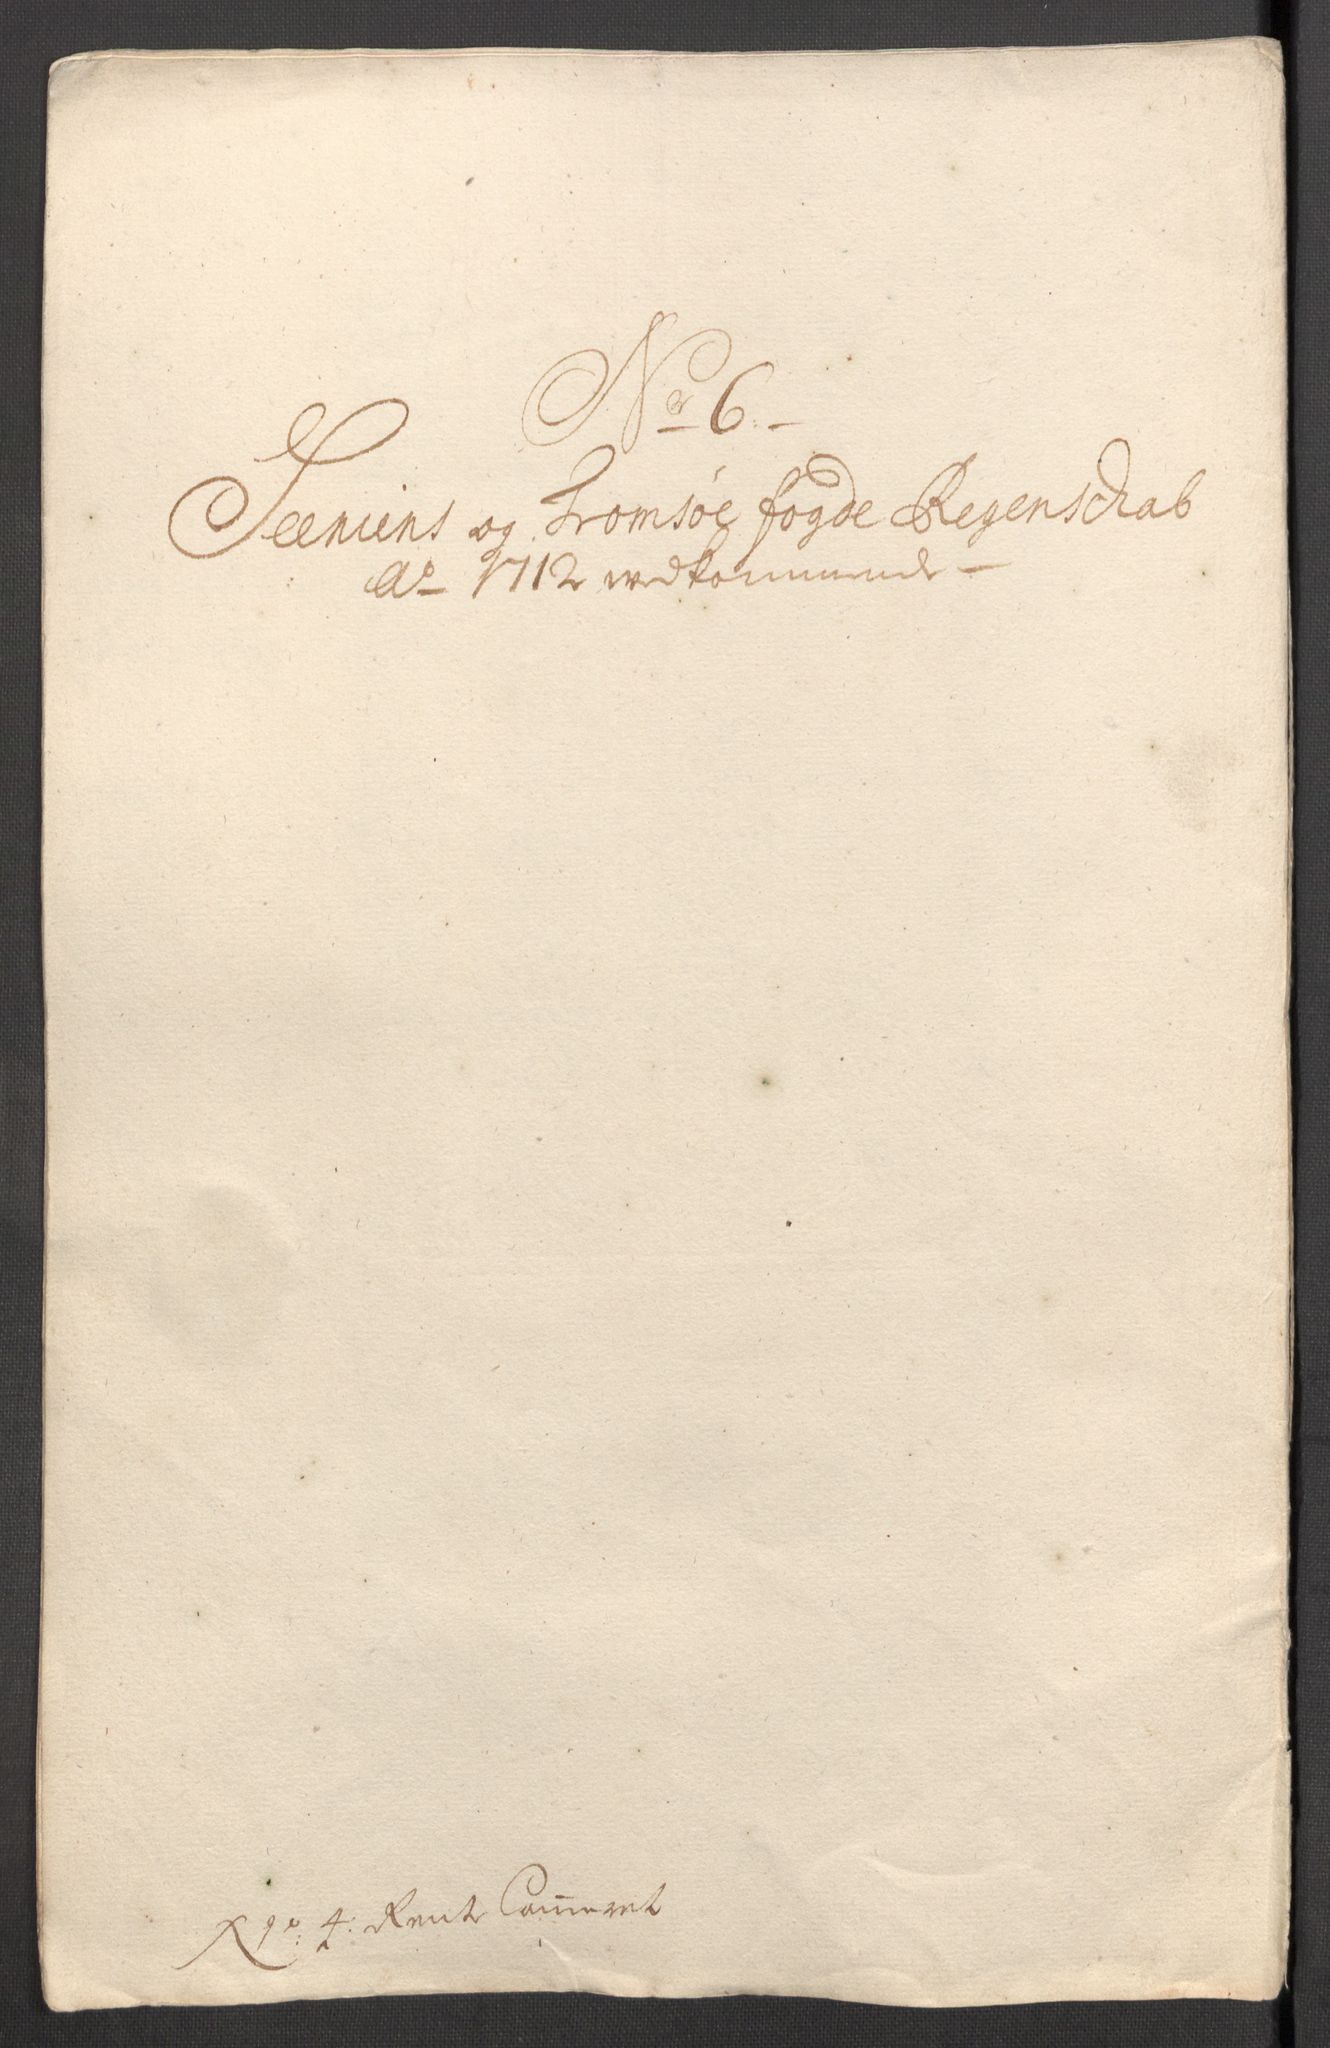 No 6.
Seeniens og Tromsøe fogde Regenschab
Ao 1712 vedkommende
4. Rente Cammeret